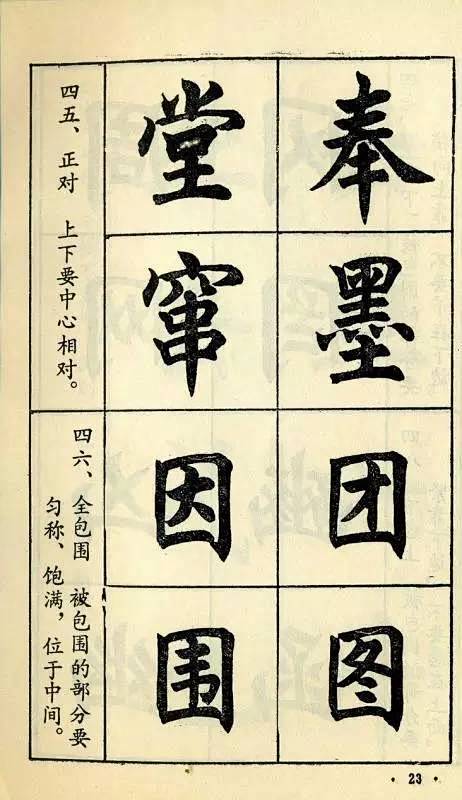 奉
墨
团
图
堂
窜
因
围
四五、正对　上下要中心相对。
四六、全包围　被包围的部分要
匀称、饱满，位于中间。
· 23 ·